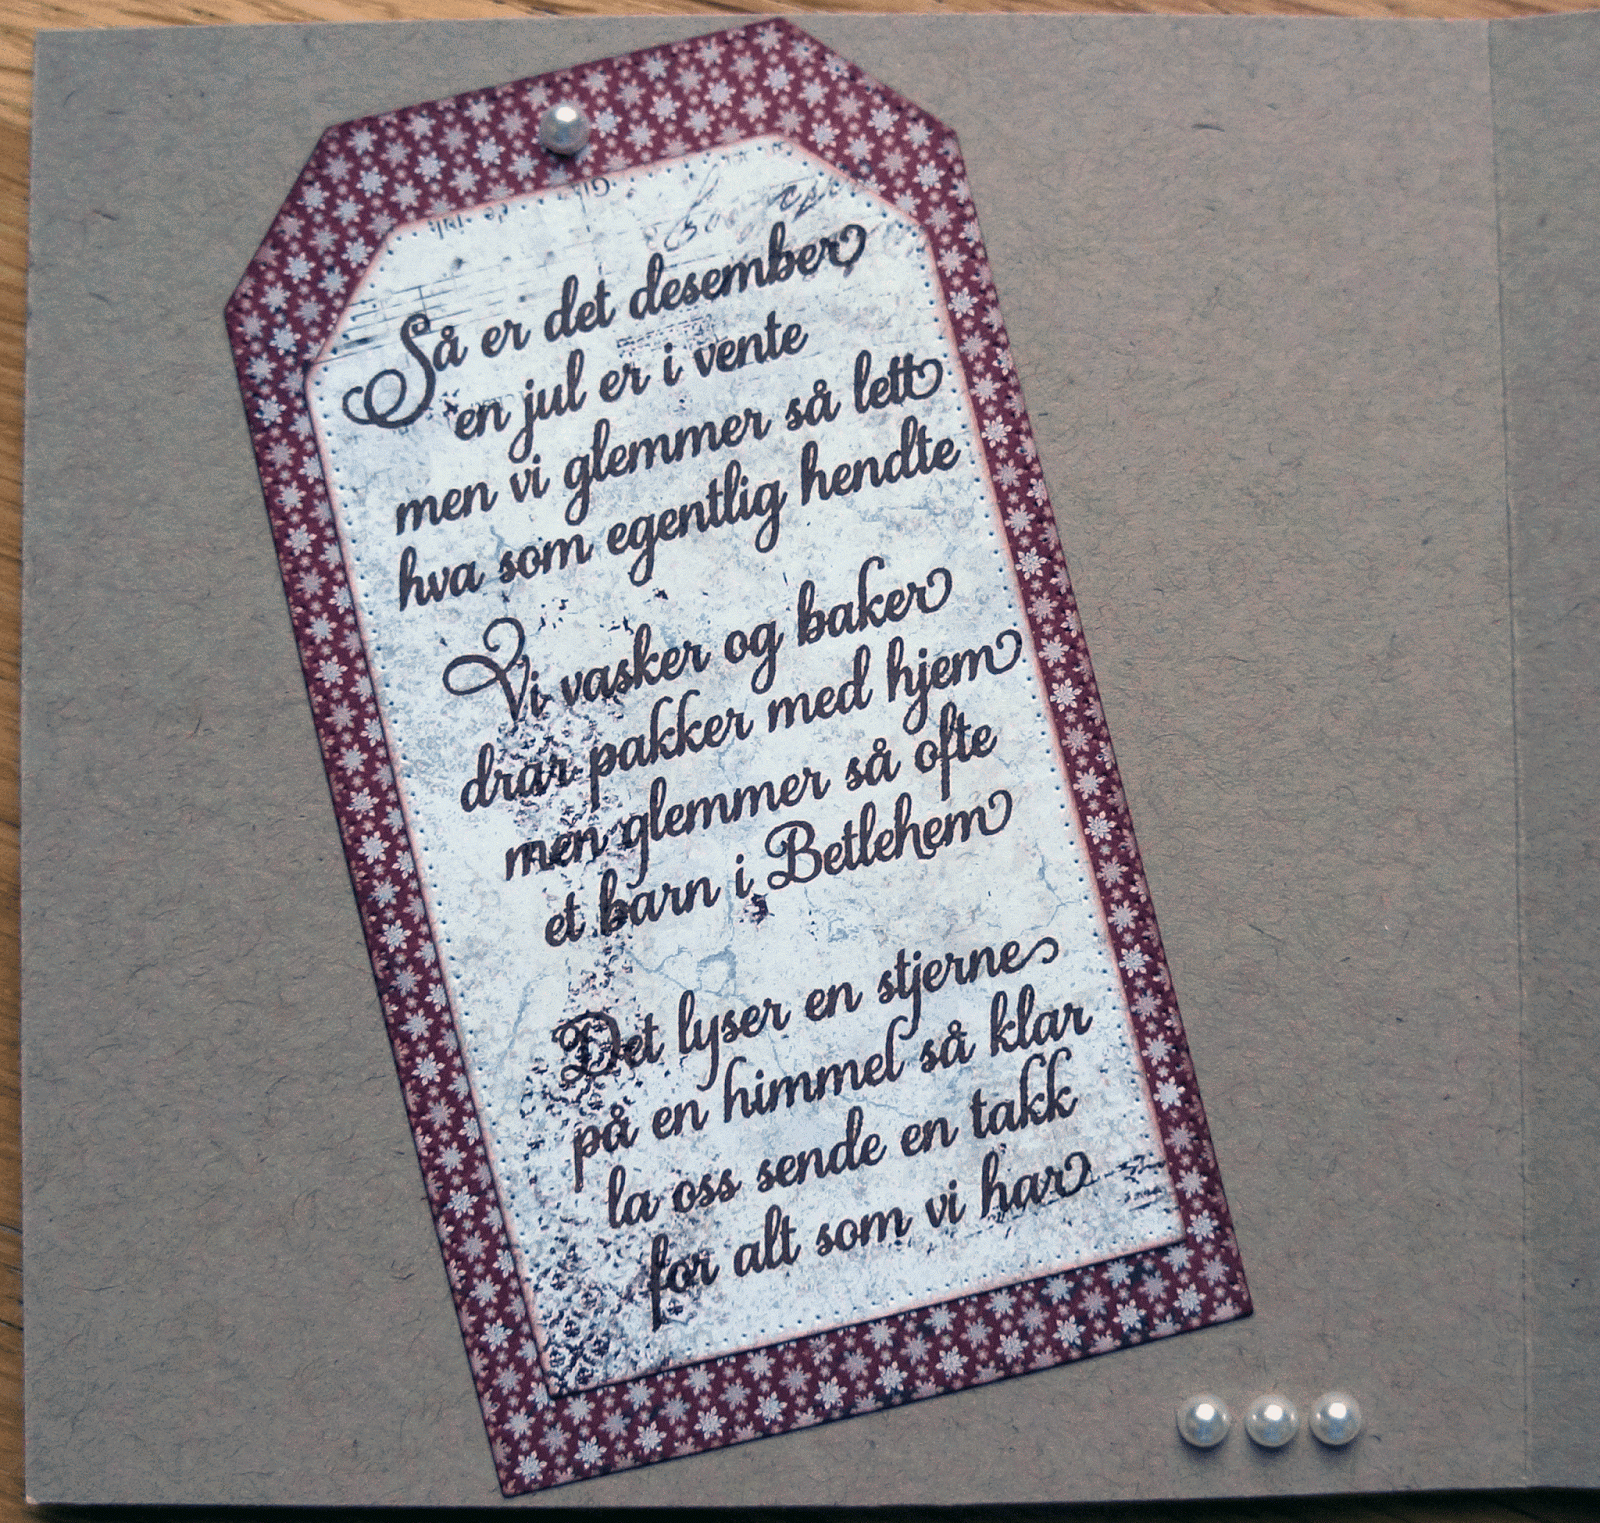 Så er det desember
en jul er i vente
men vi glemmer så lett
hva som egentlig hendte
Vi vasker og baker
drar pakker med hjem
men glemmer så ofte
et barn i Betlehem
Det lyser en stjerne
på en himmel så klar
la oss sende en takk
for alt som vi har